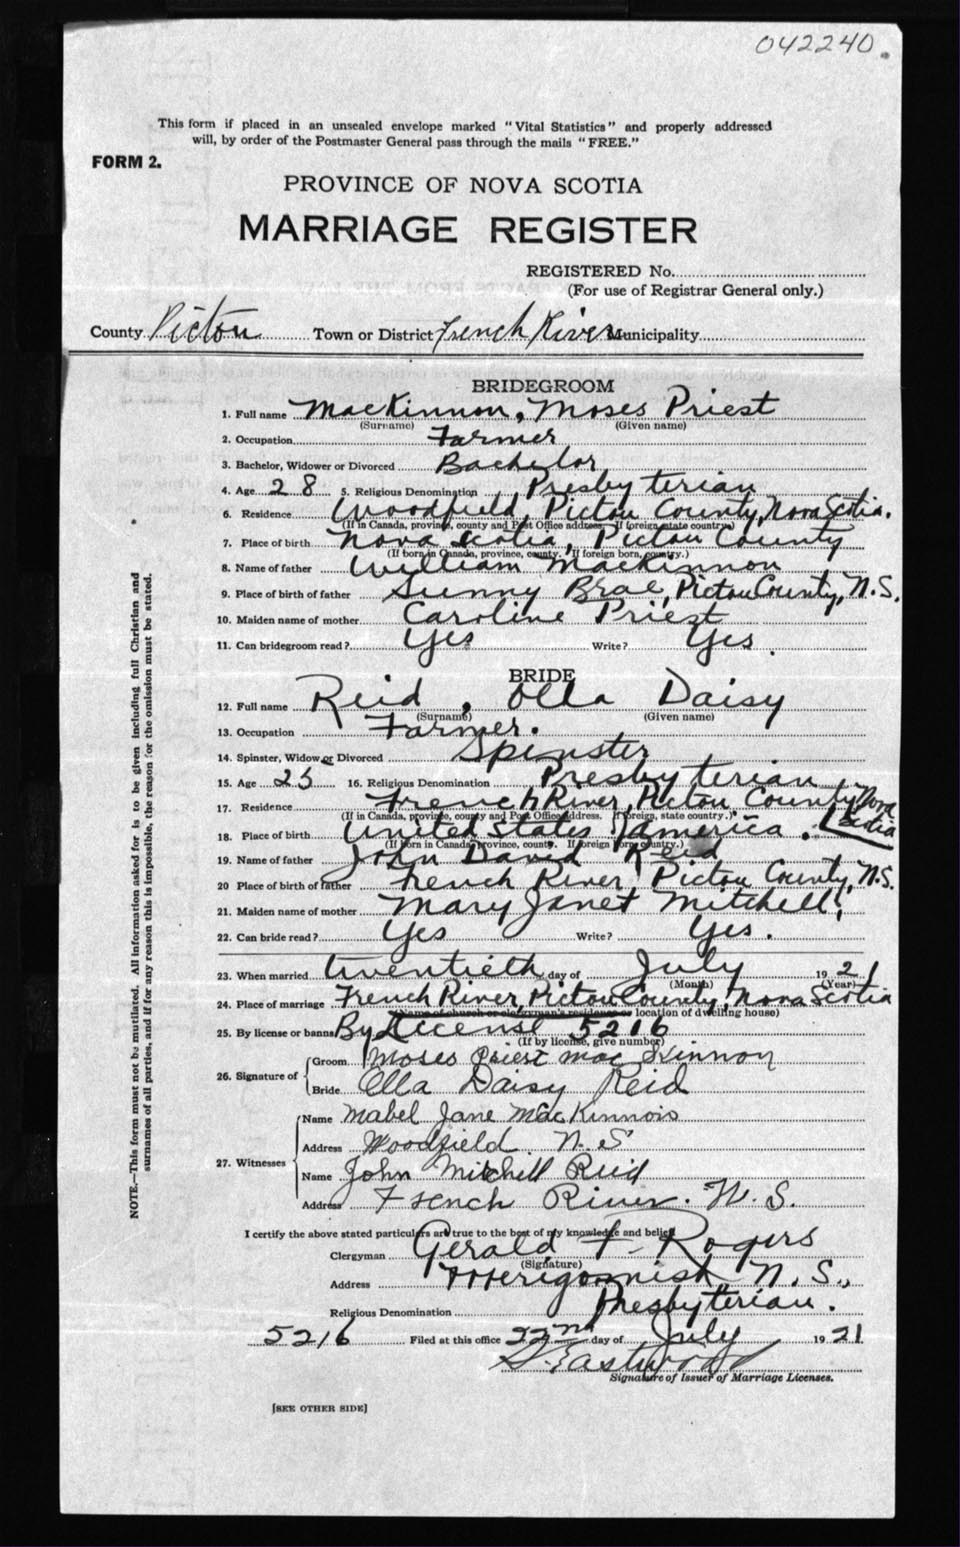 042240.
This form if placed in an unsealed envelope marked "Vital Statistics" and properly addressed
will, by order of the Postmaster General pass through the mails "FREE."
FORM 2.
PROVINCE OF NOVA SCOTIA
MARRIAGE REGISTER
REGISTERED No.
(For use of Registrar General only.)
County Pictou Town or District French River Municipality
BRIDEGROOM
1. Full name MacKinnon, Moses Priest
(Surname) (Given name)
2. Occupation Farmer
3. Bachelor, Widower or Divorced Bachelor
4. Age 28 5. Religious Denomination Presbyterian
6. Residence Woodfield, Pictou County, Nova Scotia.
(If in Canada, province, county and Post Office address. If foreign state country)
7. Place of birth Nova Scotia, Pictou County
(If born in Canada, province, county. If foreign born, country.)
8. Name of father William Mackinnon
9. Place of birth of father Sunny Brae, Pictou County, N.S.
10. Maiden name of mother Caroline Priest
11. Can bridegroom read? Yes Write? Yes.
BRIDE
12. Full name Reid, Olla Daisy
(Surname) (Given name)
13. Occupation Farmer.
14. Spinster, Widow or Divorced Spinster
15. Age 25 16. Religious Denomination Presbyterian
17. Residence French River, Pictou County, Nova Scotia
(If in Canada, province, county and Post Office address. If foreign, state country.)
18. Place of birth United States America.
(If born in Canada province, county. If foreign born country.)
19. Name of father John David Reid
20 Place of birth of father French River, Pictou County, N.S.
21. Maiden name of mother Mary Janet Mitchell
22. Can bride read? Yes Write? Yes.
23. When married twentieth day of July 1921
(Month) (Year)
24. Place of marriage French River, Pictou County, Nova Scotia
(Name of church or clergyman's residence or location of dwelling house)
25. By license or banns By License 5216
(If by license, give number)
26. Signature of
Groom Moses Priest MacKinnon
Bride Olla Daisy Reid
27. Witnesses
Name Mabel Jane MacKinnon
Address Woodfield N.S
Name John Mitchell Reid
Address French River. N.S.
I certify the above stated particulars are true to the best of my knowledge and belief
Clergyman Gerald F. Rogers
(Signature)
Address Merigomish N.S.,
Religious Denomination Presbyterian.
5216 Filed at this office 22nd day of July 1921
S. Eastwood
Signature of Issuer of Marriage Licenses.
[SEE OTHER SIDE]
NOTE.—This form must not be mutilated. All information asked for is to be given including full Christian and
surnames of all parties, and if for any reason this is impossible, the reason for the omission must be stated.